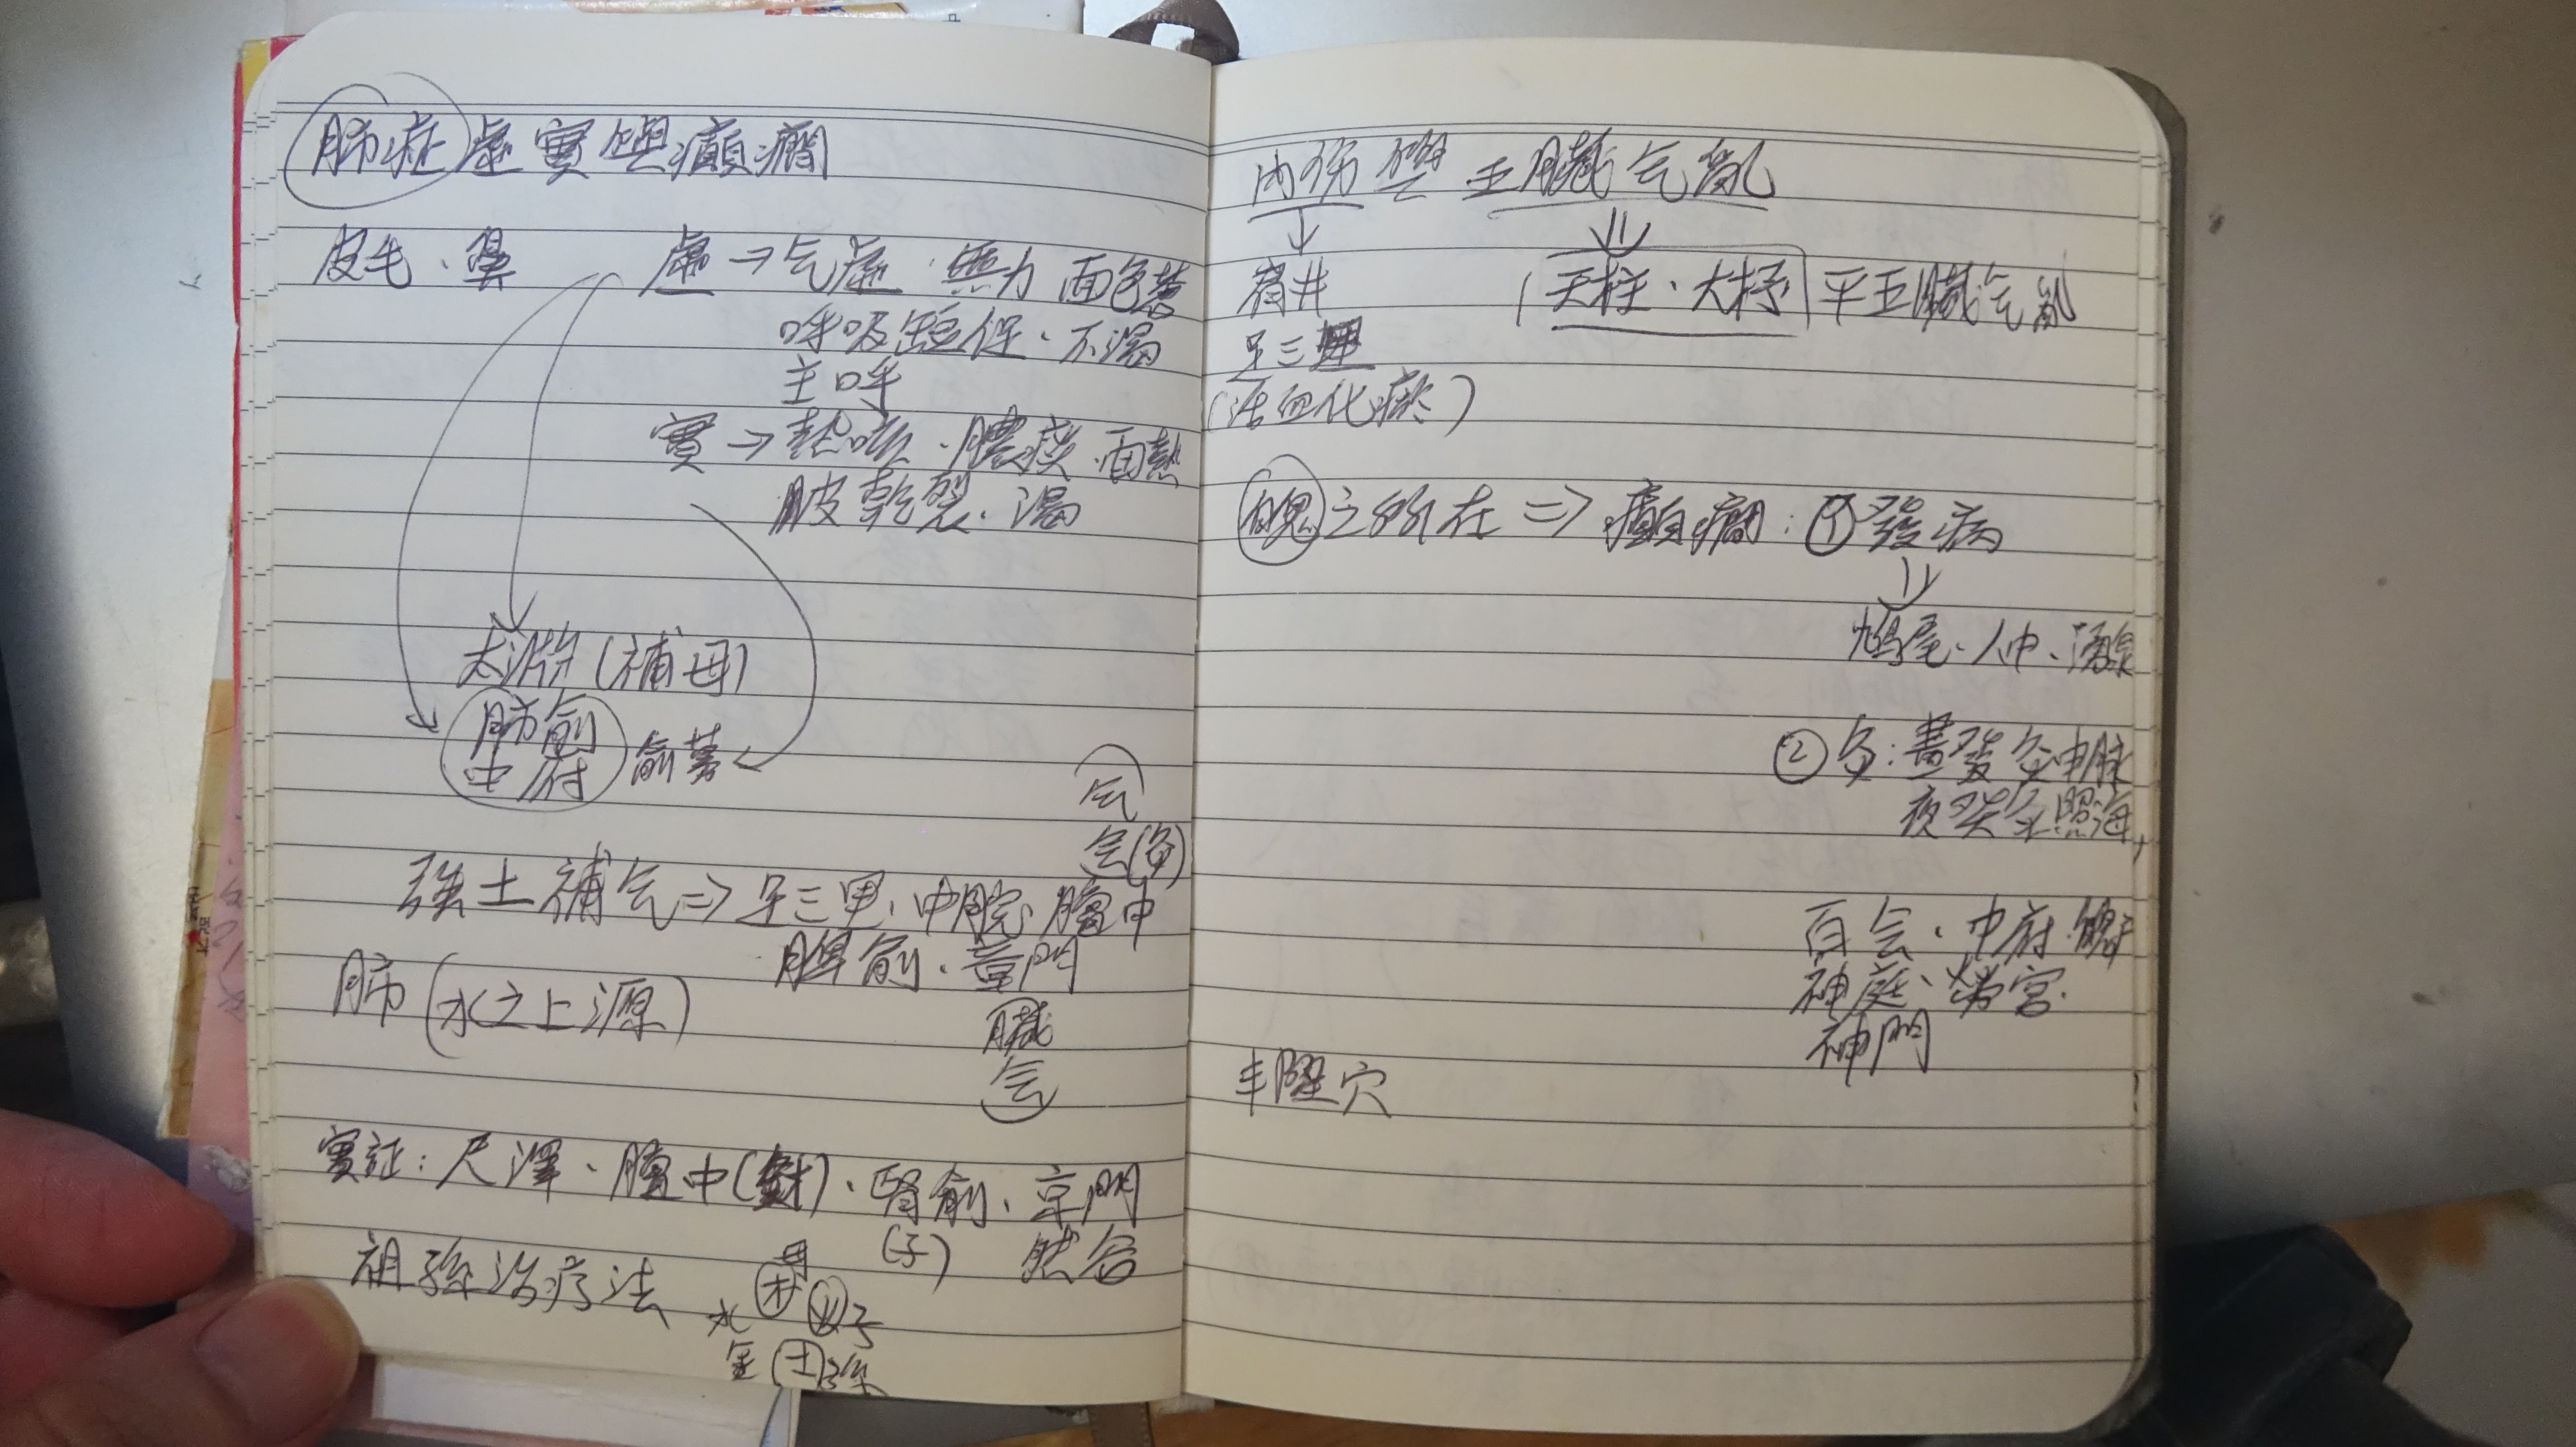 肺症虛實與癲癇
皮毛、鼻 虛→气虛、無力 面色蒼
呼吸短促、不渴
主呼
實→熱咳、膿痰、面熱
皮乾裂、渴
太淵(補母)
肺俞
中府 俞募
气
会(灸)
強土補气⇒足三里、中脘、膻中
脾俞、章門
肺(水之上源) 臟
会
實証:尺澤、膻中(針)、腎俞、京門
(子) 然谷
祖孫治疗法 母
水 木 火 子
金 土 孫
內伤與五臟气亂
↓ ⇓
肩井 (天柱、大杼)平五臟气亂
足三里
(活血化瘀)
魄之所在⇒癲癇:①發病
⇓
鳩尾、人中、湧泉
②灸:晝發灸申脉
夜發灸照海,
百会、中府、魄戶
神庭、勞宮、
神門
丰隆穴